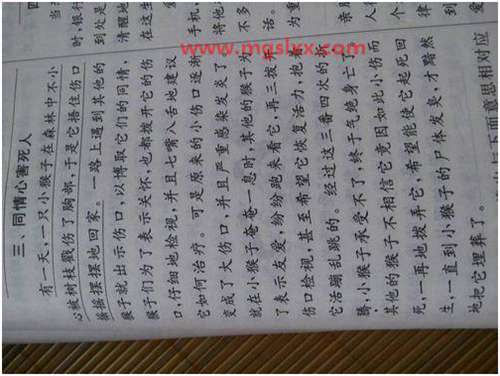 三、同情心害死人
有一天,一只小猴子在森林中不小
心被树枝戳伤了胸部,于是它捂住伤口
摇摇摆摆地回家。一路上遇到其他的
猴子就出示伤口,以博取它们的同情,
猴子们为了表示关怀,也都拨开它的伤
口,仔细地检视,并且七嘴八舌地建议
它如何治疗。可是原来的小伤口逐渐
变成了大伤口,并且严重感染发炎了。
就在小猴子奄奄一息时,其他的猴子为
了表示友爱,纷纷跑来看它,再三拨开
伤口检视,甚至希望它恢复活力,抱着
它活蹦乱跳的。经过这三番四次的折
腾,小猴子承受不了,终于气绝身亡了。
其他的猴子不相信它竟因如此小伤而
死,一再地拨弄它,希望能使它起死回
生,一直到小猴子的尸体发臭,才黯然
地把它埋葬了。
下面意思相对应
时,银行
到处是
清醒地
在这生
手机,
将他
不多
话。
为重
www.mgslyx.com